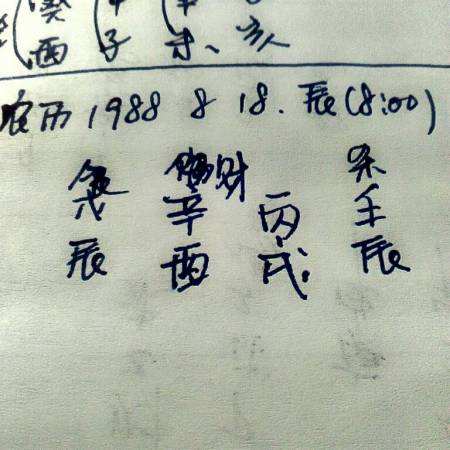 癸
酉 子 未、亥
农历 1988 8 18. 辰(8:00)
食 财 杀
戊 辛 丙 壬
辰 酉 戌 辰